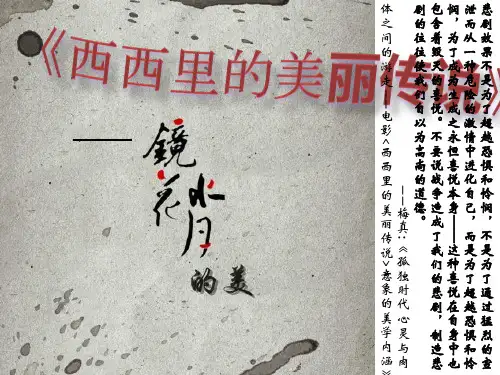 《西西里的美丽传说》
——鏡花水月的美
悲剧效果不是为了超越恐惧和怜悯，不是为了通过猛烈的宣
泄而从一种危险的激情中进化自己，而是为了超越恐惧和怜
悯，为了成为生成之永恒喜悦本身——这种喜悦在自身中也
包含着毁灭的喜悦。不要说战争造成了我们的悲剧，制造悲
剧的往往使我们自以为高尚的道德。
——梅真：《孤独时代心灵与肉
体之间的游走——电影<西西里的美丽传说>意象的美学内涵》